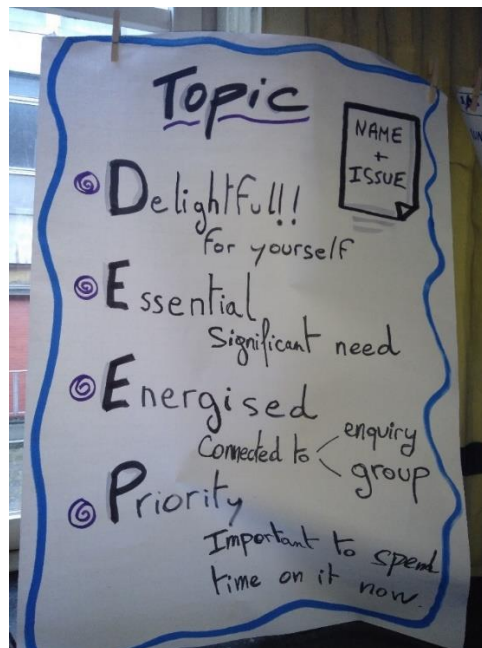 Topic
NAME
+
ISSUE
Delightful!!
for yourself
Essential
Significant need
Energised
Connected to
enquiry
group
Priority
Important to spend
time on it now.